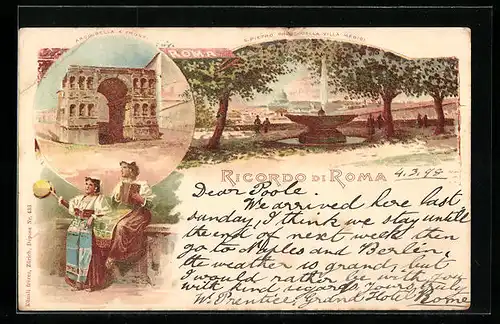 ARCO DELLA 4 FRONTI
ROMA
S. PIETRO PRESO DALLA VILLA MEDICI
RICORDO DI ROMA
4.3.98
Dear Poole.
We arrived here last
sunday, I think we stay untill
the end of next week then
go to Naples and Berlin,
the weather is grand, but
I would rather be with you
with kind regards Yours truly
W. Prentice, Grand Hotel Rome
Künzli frères, Zürich, Dépose Nr. 453